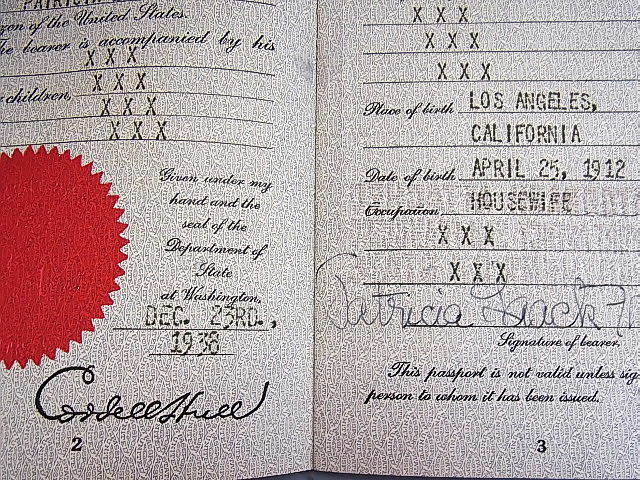 PATRICIA
zen of the United States.
he bearer is accompanied by his
X X X
X X X
children,
X X X
X X X
Given under my
hand and the
seal of the
Department of
State
at Washington,
DEC. 23RD.,
1938
Cordell Hull
2
X X X
X X X
X X X
Place of birth LOS ANGELES,
CALIFORNIA
Date of birth APRIL 25, 1912
Occupation HOUSEWIFE
X X X
X X X
Patricia
Signature of bearer.
This passport is not valid unless sig
person to whom it has been issued.
3